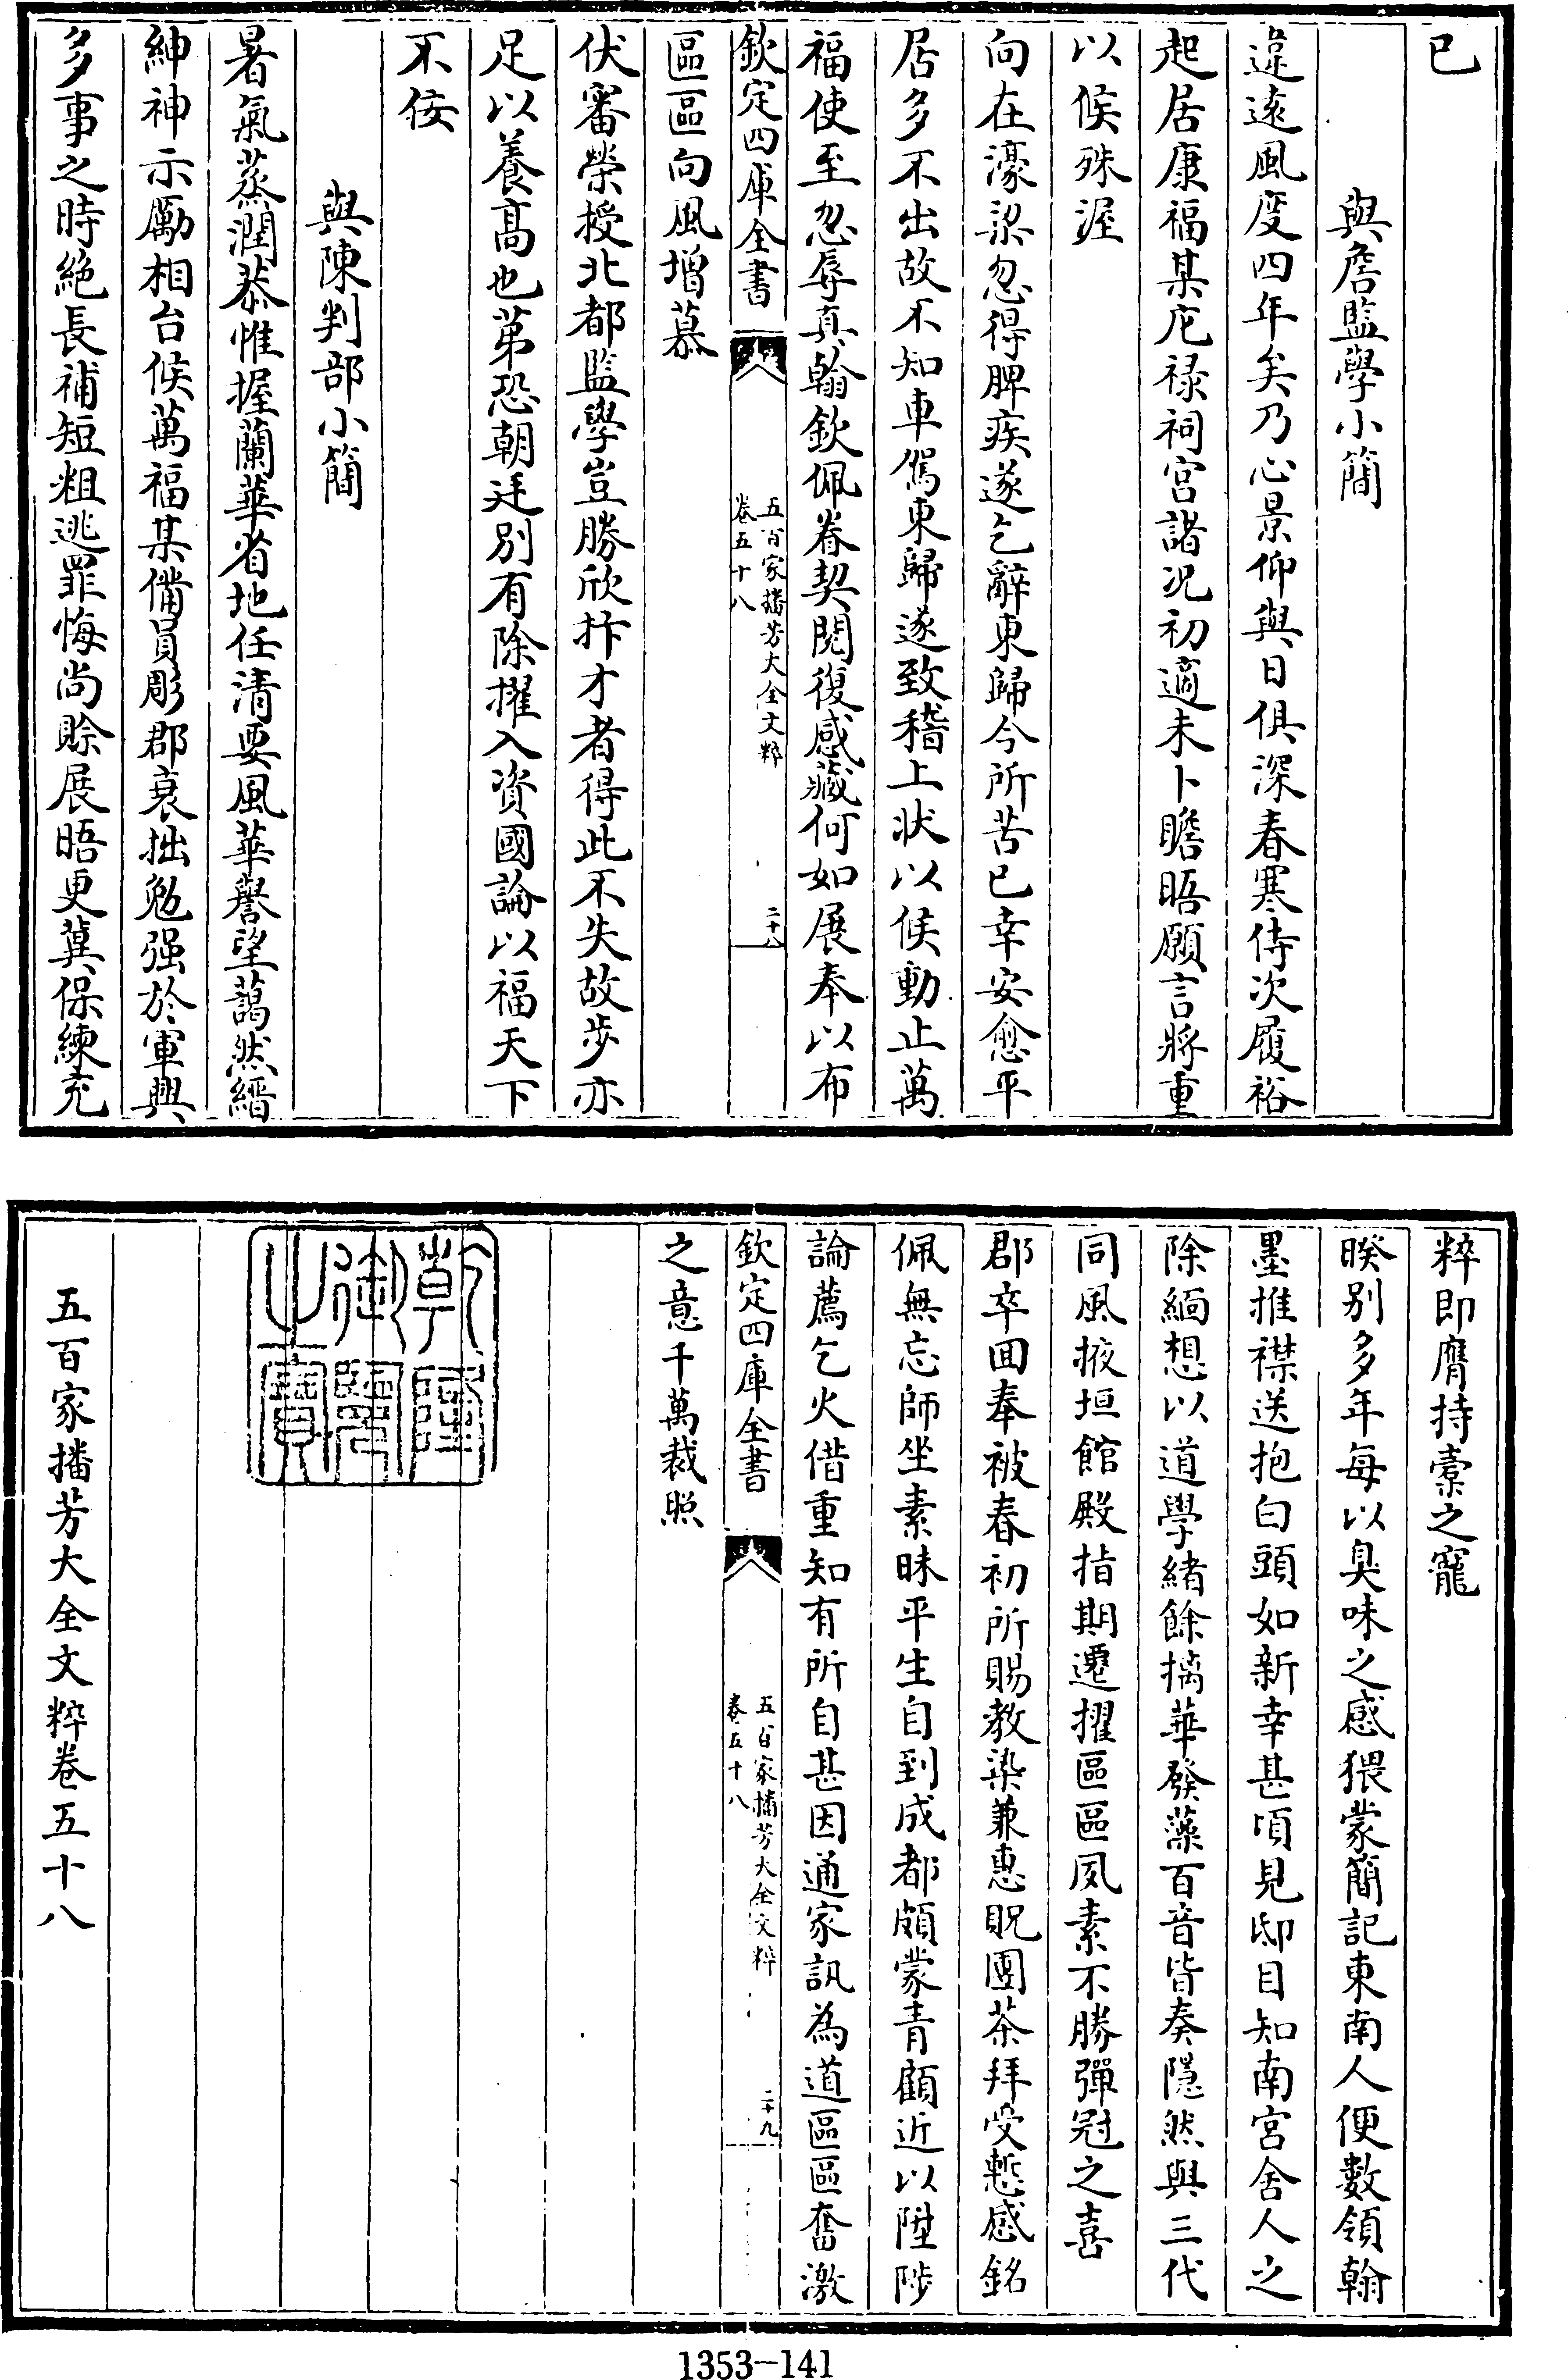 已
與詹監學小簡
違逺風度四年矣乃心景仰與日俱深春寒侍次履裕
起居康福某庀禄祠宫諸况初適未卜瞻晤願言將重
以候殊渥
向在濠梁忽得脾疾遂乞辭東歸今所苦已幸安愈平
居多不出故不知車駕東歸遂致稽上狀以候動止萬
福使至忽辱真翰欽佩眷契閱復感藏何如展奉以布
欽定四庫全書
五百家播芳大全文粹
卷五十八
二十八
區區向風增慕
伏審榮授北都監學豈勝欣抃才者得此不失故步亦
足以養髙也第恐朝廷別有除擢入資國論以福天下
不佞
與陳判部小簡
暑氣蒸潤恭惟握蘭華省地任清要風華譽望藹然縉
紳神示勵相台候萬福某備員彫郡衰拙勉强於軍興
多事之時絶長補短粗逃罪悔尚賒展晤更冀保練充
粹即膺持橐之寵
暌别多年每以臭味之感猥蒙簡記東南人便數領翰
墨推襟送抱白頭如新幸甚頃見邸目知南宫舍人之
除緬想以道學緒餘摛華發藻百音皆奏隱然與三代
同風掖垣館殿指期遷擢區區夙素不勝彈冠之喜
郡卒囬奉被春初所賜教染兼惠貺團茶拜受慙感銘
佩無忘師坐素昧平生自到成都頗蒙青顧近以陞陟
論薦乞火借重知有所自甚因通家訊為道區區奮激
欽定四庫全書
五百家播芳大全文粹
卷五十八
二十九
之意千萬裁照
乾隆御覽之寶
五百家播芳大全文粹卷五十八
1353-141